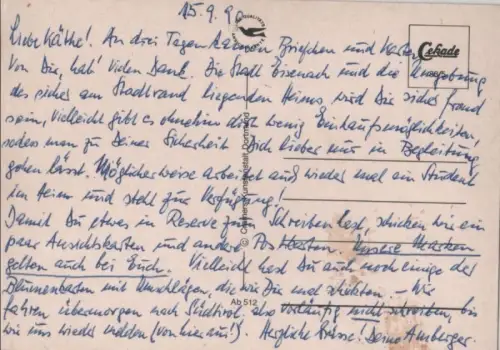 15.9.90
Liebe Käthe! An drei Tagen kamen Briefchen und Karten
von Dir, hab' vielen Dank. Die Stadt Eisenach und die Umgebung
des sicher am Stadtrand liegenden Heims wird Dir sicher fremd
sein, vielleicht gibt es ohnehin dort wenig Einkaufsmöglichkeiten
sodass man zu Deiner Sicherheit Dich lieber nur in Begleitung
gehen lässt. Möglicherweise arbeitet auch wieder mal ein Student
im Heim und steht zur Verfügung!
Damit Du etwas in Reserve zum Schreiben hast, schicken wir ein
paar Ansichtskarten und andere Postkarten. Unsere Marken
gelten auch bei Euch. Vielleicht hast Du auch noch einige der
Blumenkarten mit Umschlägen, die wir Dir mal schickten – Wir
fahren übermorgen nach Südtirol, also vorläufig nicht schreiben, bis
wir uns wieder melden (von hier aus!). Herzliche Grüsse! Deine Amberger.
Cekade
© Cramers Kunstanstalt Dortmund
Ab 512